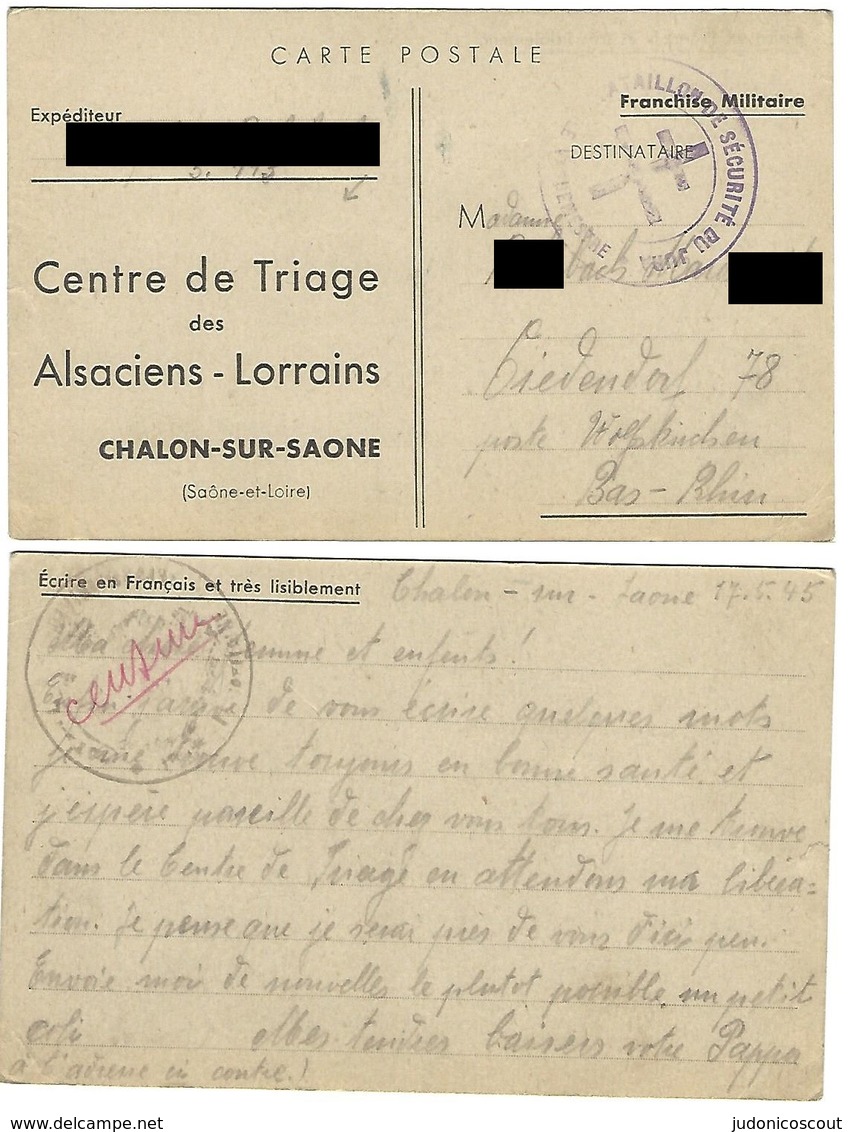 CARTE POSTALE
Expéditeur
S. 113
Centre de Triage
des
Alsaciens - Lorrains
CHALON-SUR-SAONE
(Saône-et-Loire)
Franchise Militaire
DESTINATAIRE
BATAILLON DE SÉCURITÉ DU JURA
Madame
78
poste Wolfskirchen
Bas-Rhin
Écrire en Français et très lisiblement
Chalon-sur-Saone 17.5.45
censure
Ma femme et enfants!
de vous écrire quelques mots
je me trouve toujours en bonne santé et
j'espère pareille de cher vous tous. Je me trouve
dans le Centre de Triage en attendons ma libéra=
tion. Je pense que je serai près de vous d'ici peu.
Envoie moi de nouvelles le plutot possible, un petit
coli Mes tendres baisers votre Pappa
à l'adresse ci contre!
judonicoscout